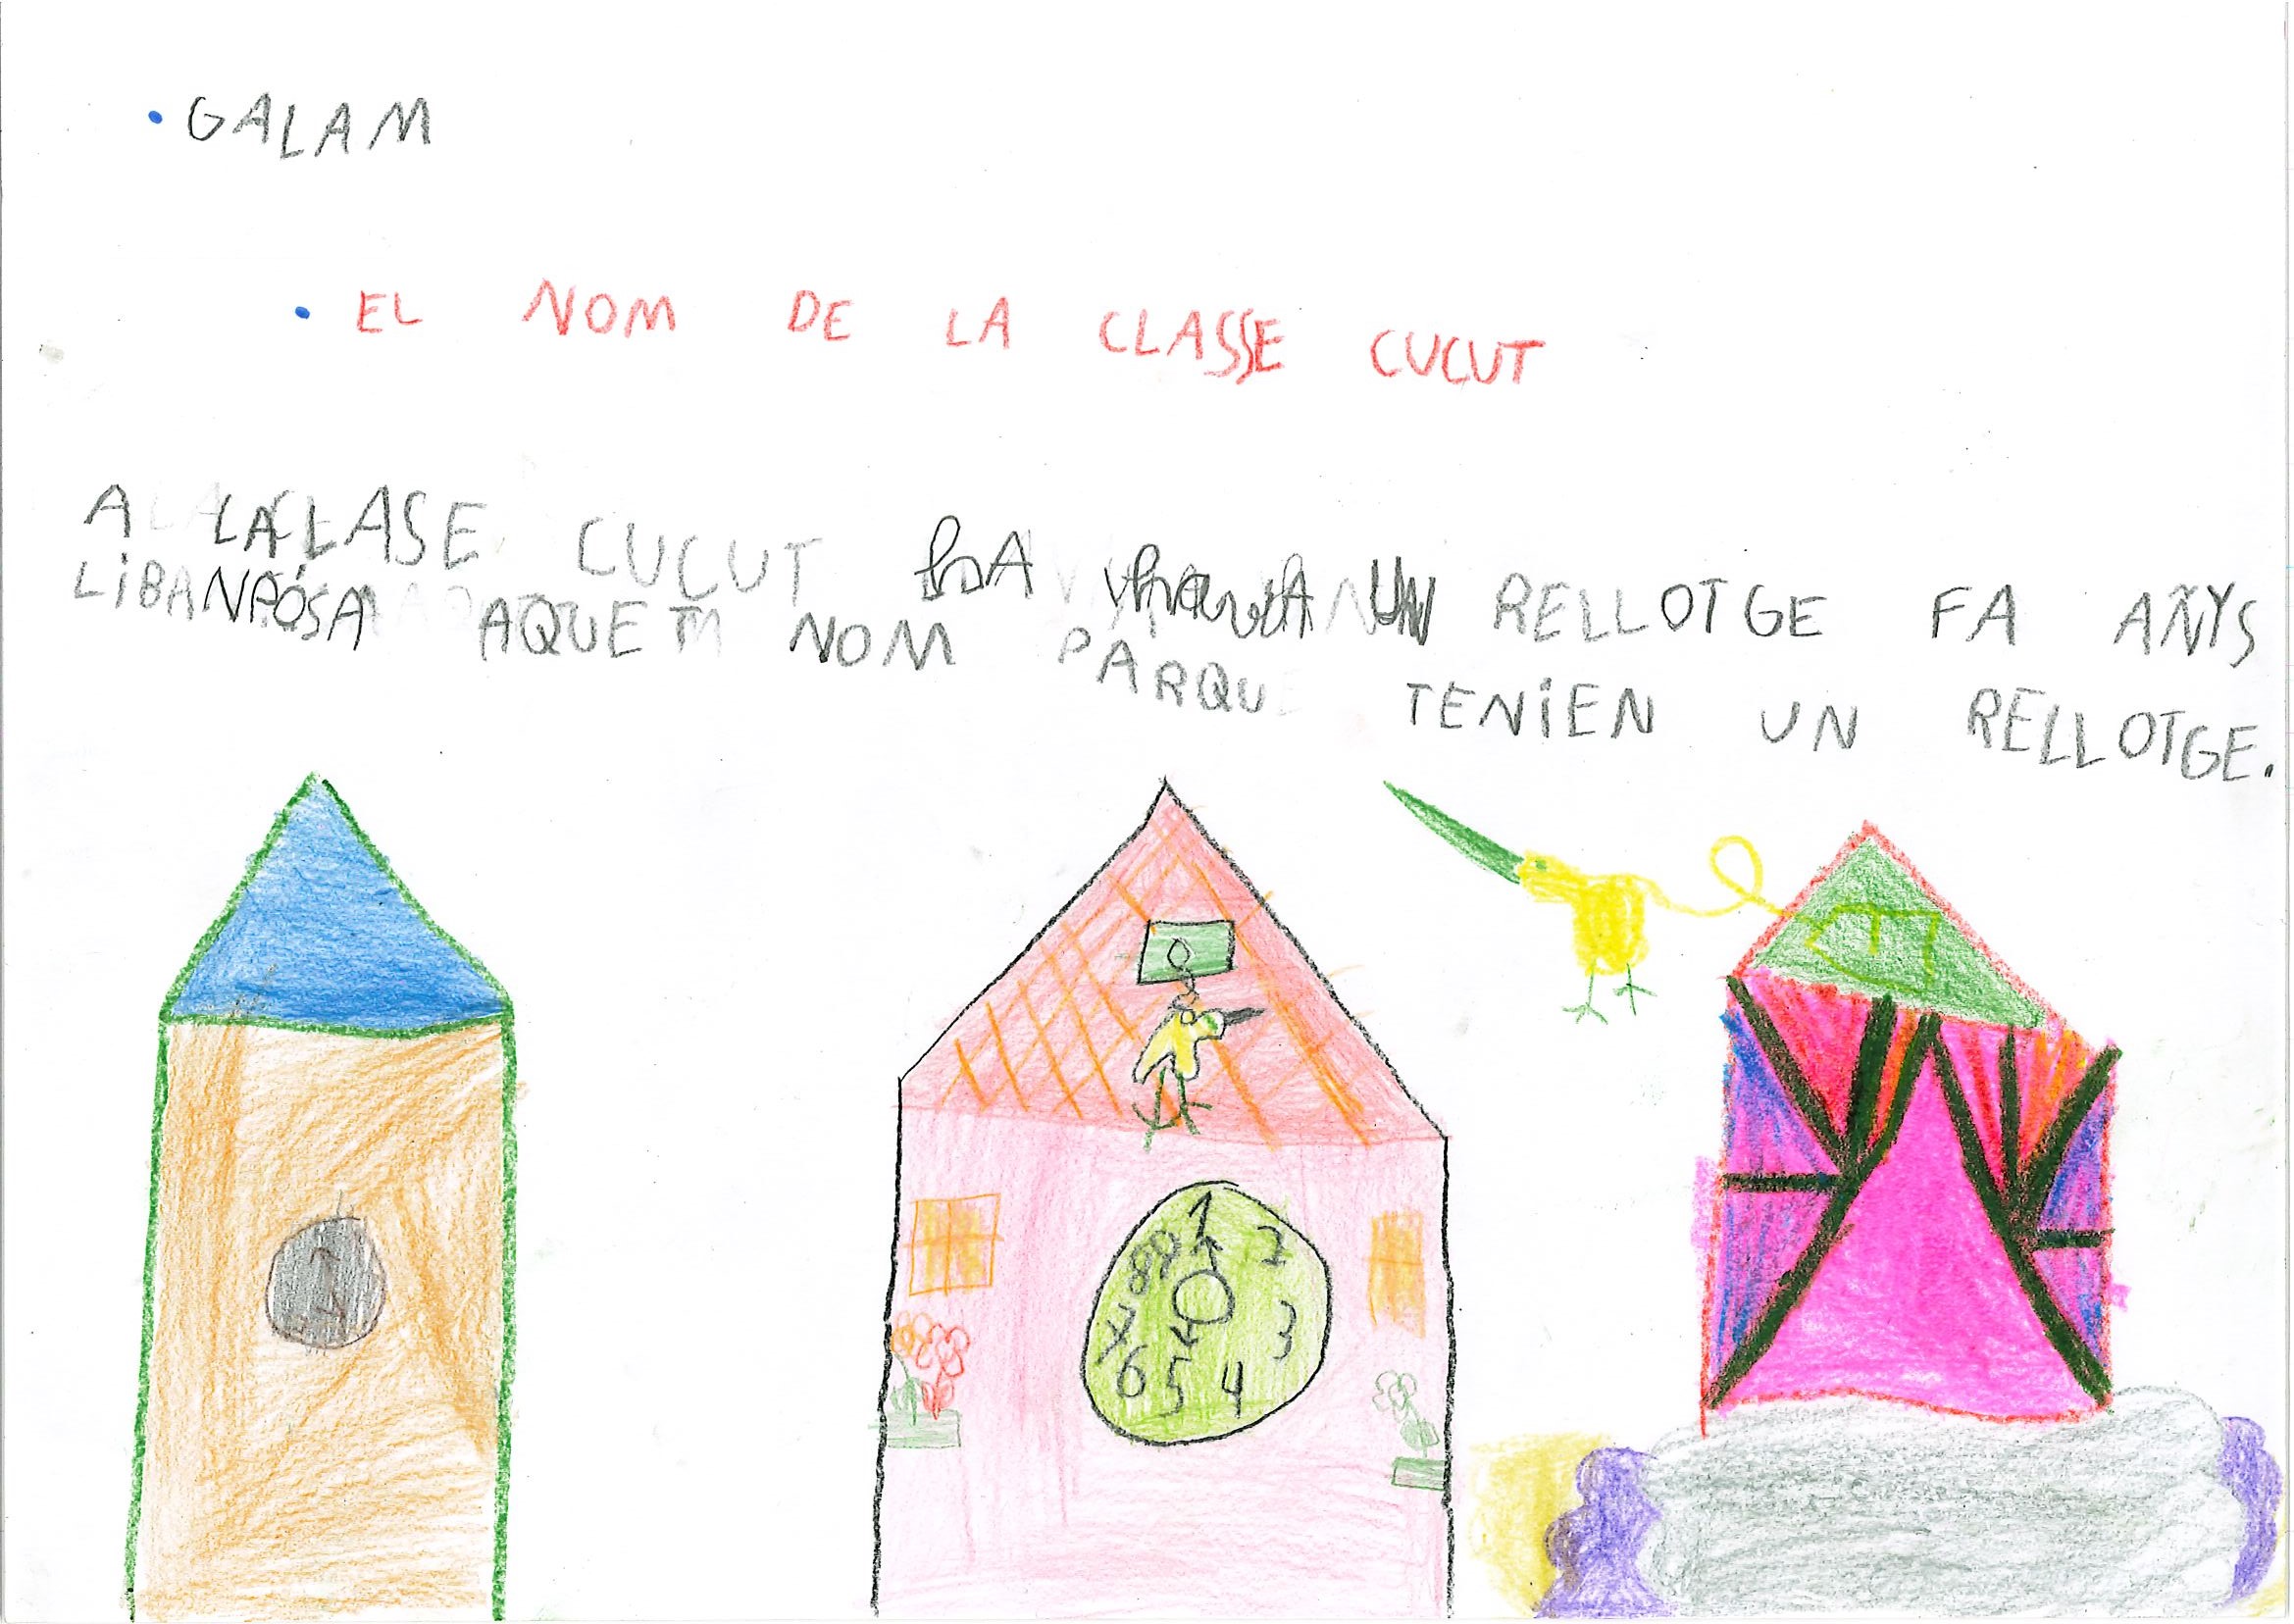 GALAM
EL NOM DE LA CLASSE CUCUT
A LA CLASE CUCUT HA UN RELLOTGE FA AÑYS
LIBANPÓSA AQUET NOM PARQU TENIEN UN RELLOTGE.
1 2 3 4 5 6